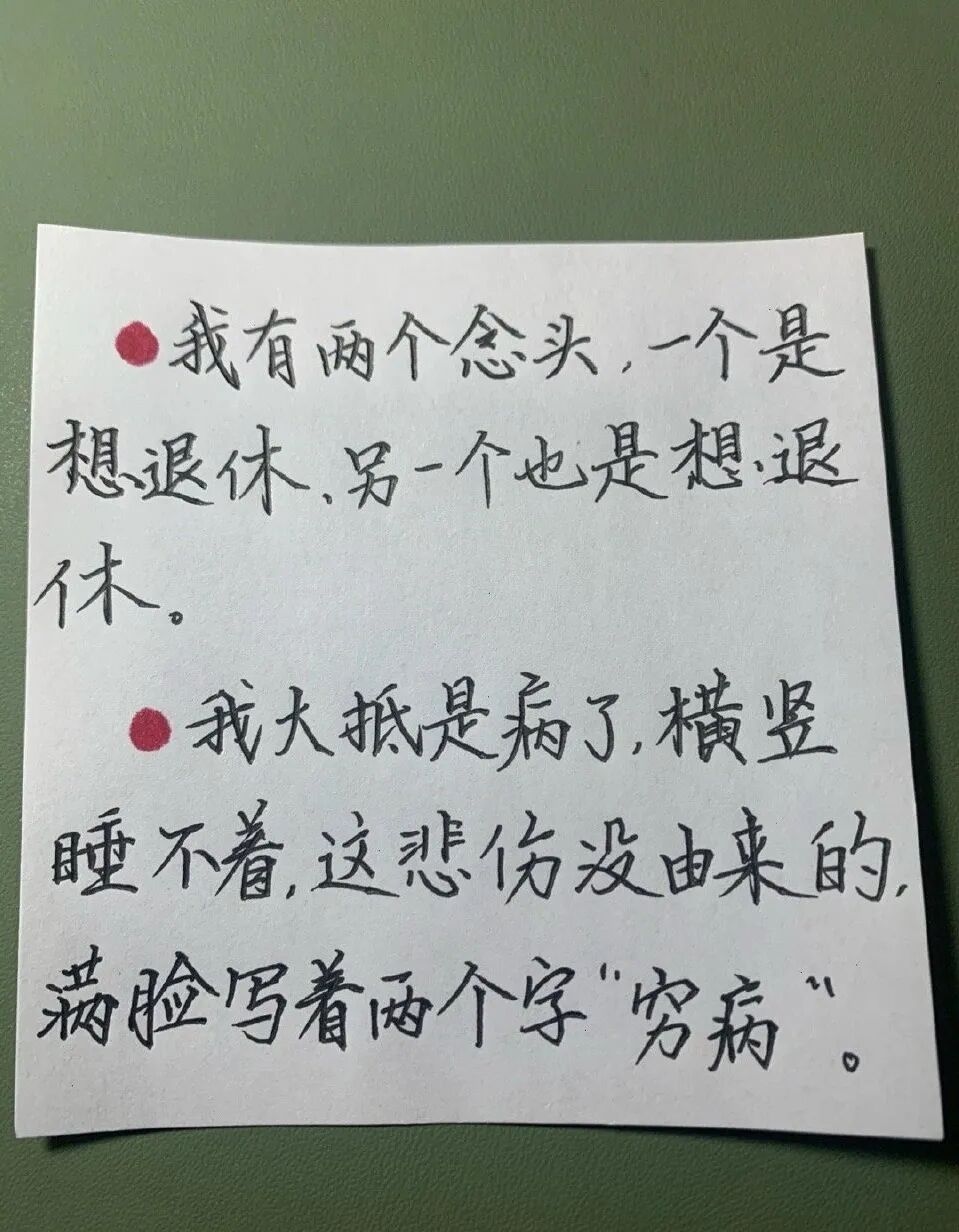 ●我有两个念头，一个是
想退休、另一个也是想退
休。
●我大抵是病了，横竖
睡不着，这悲伤没由来的，
满脸写着两个字“穷病”。